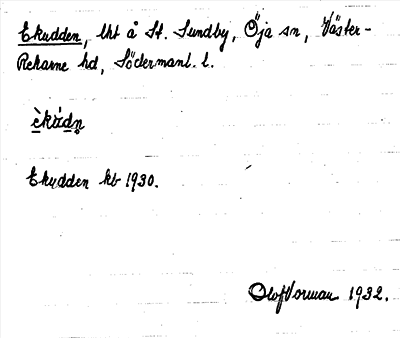 Ekudden, lht å St. Sundby, Öja sn, Väster-
Rekarne hd, Södermanl. l.
èkúdn̥
Ekudden kb 1930.
Olof Vorman 1932.